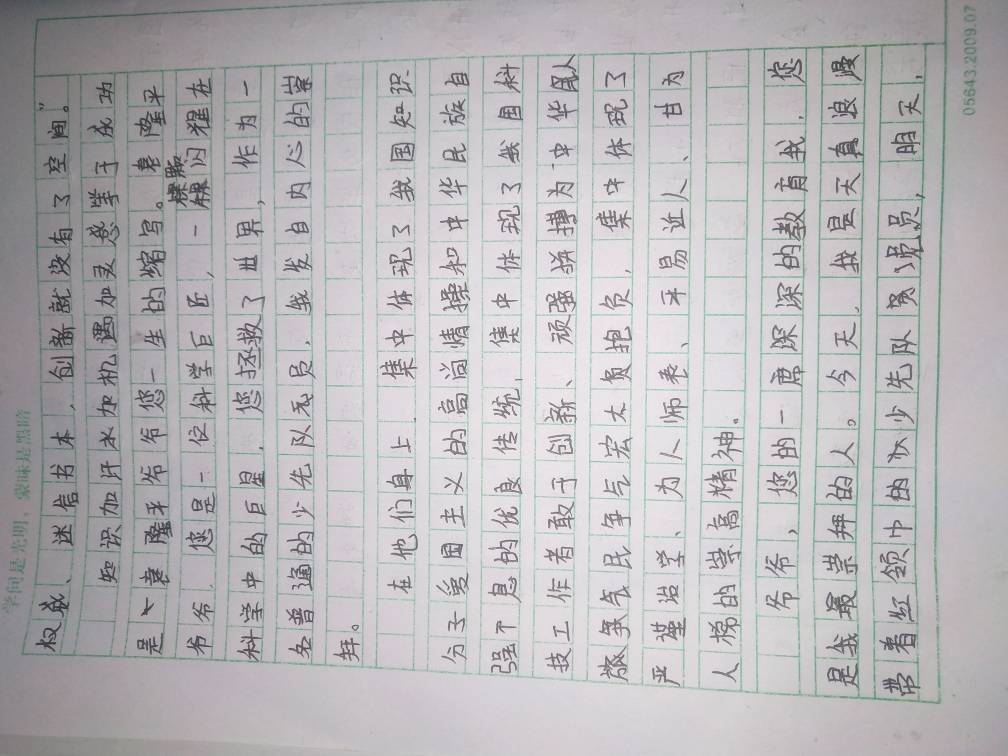 学问是光明，蒙昧是黑暗
权威、迷信书本，创新就没有了空间。”
知识加汗水加机遇加灵感等于成功
是袁隆平爷爷您一生的缩写。袁隆平
爷爷，您是一位科学巨匠，一颗闪耀在
科学中的巨星，您拯救了世界，作为一
名普通的少先队员，我发自内心的崇
拜。
在他们身上，集中体现了我国知识
分子爱国主义的高尚情操和中华民族自
强不息的优良传统，集中体现了我国科
技工作者敢于创新、顽强拼搏为中华民
族争气民争气宏大负抱负，集中体现了
严谨治学、为人师表、平易近人、甘为
人梯的崇高精神。
爷爷，您的一席深深的教育我，您
是我最崇拜的人。今天，我是天真浪漫
带着红领巾的少先队员，明天，
05643.2009.07